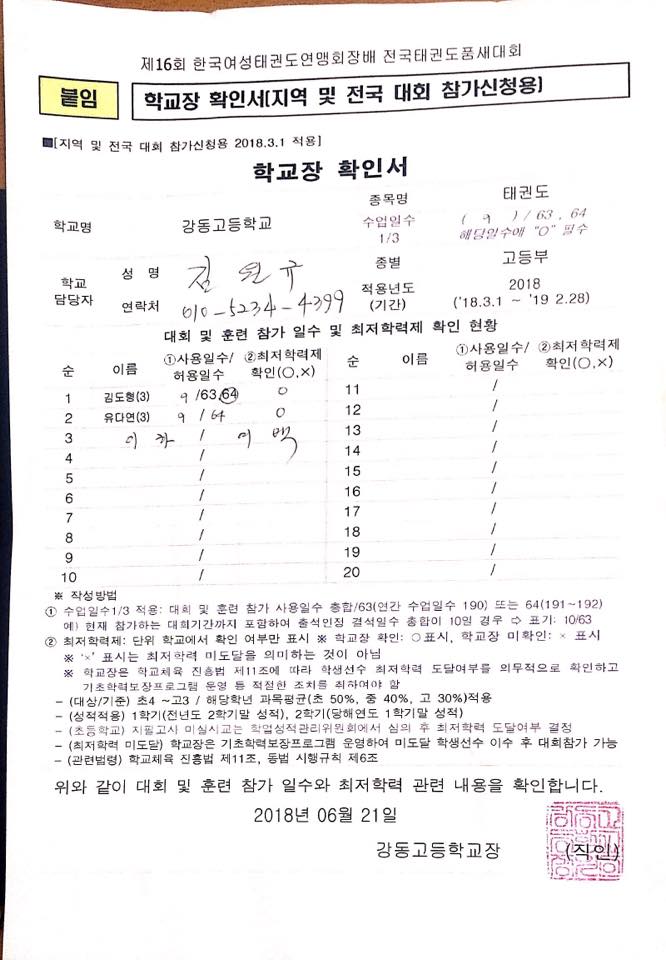 제16회 한국여성태권도연맹회장배 전국태권도품새대회
붙임 학교장 확인서(지역 및 전국 대회 참가신청용)
■[지역 및 전국 대회 참가신청용 2018.3.1 적용]
학교장 확인서
학교명 강동고등학교 종목명 태권도
수업일수 1/3 ( 9 ) / 63 , 64
해당일수에 "O" 필수
학교 담당자 성 명 김원규 종별 고등부
연락처 010-5234-4399 적용년도 (기간) 2018
('18.3.1 ~ '19 2.28)
대회 및 훈련 참가 일수 및 최저학력제 확인 현황
순 이름 ①사용일수/허용일수 ②최저학력제 확인(○,×) 순 이름 ①사용일수/허용일수 ②최저학력제 확인(○,×)
1 김도형(3) 9 /63,64 O 11 /
2 유다연(3) 9 / 64 O 12 /
3 이하 / 여백 13 /
4 / 14 /
5 / 15 /
6 / 16 /
7 / 17 /
8 / 18 /
9 / 19 /
10 / 20 /
※ 작성방법
① 수업일수1/3 적용: 대회 및 훈련 참가 사용일수 총합/63(연간 수업일수 190) 또는 64(191~192)
예) 현재 참가하는 대회기간까지 포함하여 출석인정 결석일수 총합이 10일 경우 ⇨ 표기: 10/63
② 최저학력제: 단위 학교에서 확인 여부만 표시 ※ 학교장 확인: ○표시, 학교장 미확인: × 표시
※ '×' 표시는 최저학력 미도달을 의미하는 것이 아님
※ 학교장은 학교체육 진흥법 제11조에 따라 학생선수 최저학력 도달여부를 의무적으로 확인하고
기초학력보장프로그램 운영 등 적절한 조치를 취하여야 함
- (대상/기준) 초4 ~고3 / 해당학년 과목평균(초 50%, 중 40%, 고 30%)적용
- (성적적용) 1학기(전년도 2학기말 성적), 2학기(당해연도 1학기말 성적)
- (초등학교) 지필고사 미실시교는 학업성적관리위원회에서 심의 후 최저학력 도달여부 결정
- (최저학력 미도달) 학교장은 기초학력보장프로그램 운영하여 미도달 학생선수 이수 후 대회참가 가능
- (관련법령) 학교체육 진흥법 제11조, 동법 시행규칙 제6조
위와 같이 대회 및 훈련 참가 일수와 최저학력 관련 내용을 확인합니다.
2018년 06월 21일
강동고등학교장 (직인)